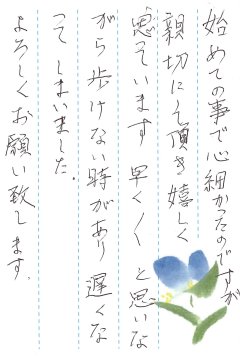 始めての事で心細かったのですが
親切にして頂き嬉しく
思そいます 早く〱 と思いな
がら歩けない時があり 遅くな
ってしまいました.
よろしくお願い致します。